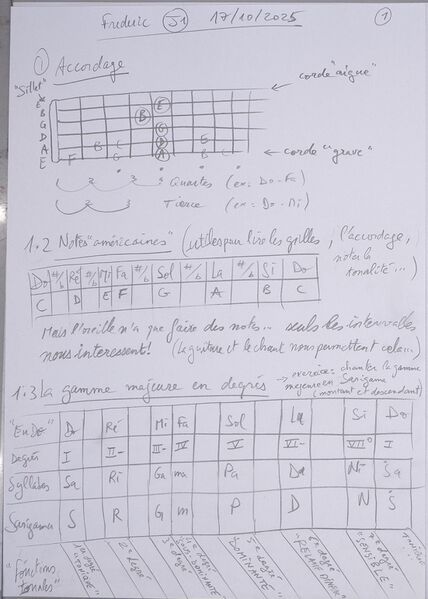 Frederic S1 17/10/2025 1
1 Accordage
"Sillet"
corde "aigue"
E
B
G
D
A
E
E
B
G
D
A
F G A B C
corde "grave"
Quartes (ex: Do-Fa)
Tierce (ex: Do-Mi)
1.2 Notes "américaines" (utiles pour lire les grilles, l'accordage,
noter la
tonalité...)
Do #/b Ré #/b Mi Fa #/b Sol #/b La #/b Si Do
C D E F G A B C
Mais l'oreille n'a que faire des notes... seuls les intervalles
nous interessent! (La guitare et le chant nous permettent cela...)
1.3 La gamme majeure en degrés → exercice: chanter la gamme
majeure en Sargama
(montant et descendant)
"En Do" Do Ré Mi Fa Sol La Si Do
Degrés I II- III- IV V VI- VII° I
Syllabes Sa Ri Ga ma Pa Da Ni Sa
Sargama S R G m P D N S
"Fonctions
tonales"
1er degré "TONIQUE"
2e degré
3e degré
4e degré "SOUS-DOMINANTE"
5e degré "DOMINANTE"
6e degré
7e degré "SENSIBLE"
TONIQUE